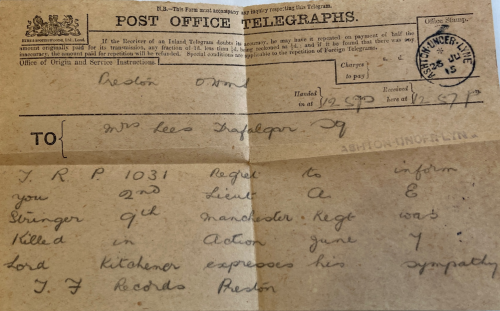 N.B.—This Form must accompany any inquiry respecting this Telegram.
POST OFFICE TELEGRAPHS.
If the Receiver of an Inland Telegram doubts its accuracy, he may have it repeated on payment of half the
amount originally paid for its transmission, any fraction of 1d. less than ½d. being reckoned as ½d.; and if it be found that there was any
inaccuracy, the amount paid for repetition will be refunded. Special conditions are applicable to the repetition of Foreign Telegrams.
Office Stamp.
ASHTON-UNDER-LYNE
JU
15
Office of Origin and Service Instructions.
Charges
to pay
s. d.
Preston
Handed
in at
12.57P
Received
here at
12.57P
TO
Mrs Lees Trafalgar Sq
ASHTON-UNDER-LYNE
T. R. P. 1031 Regret to inform
you 2nd Lieut A E
Stringer 9th Manchester Regt was
Killed in Action June 7
Lord Kitchener expresses his sympathy
T. F Records Preston